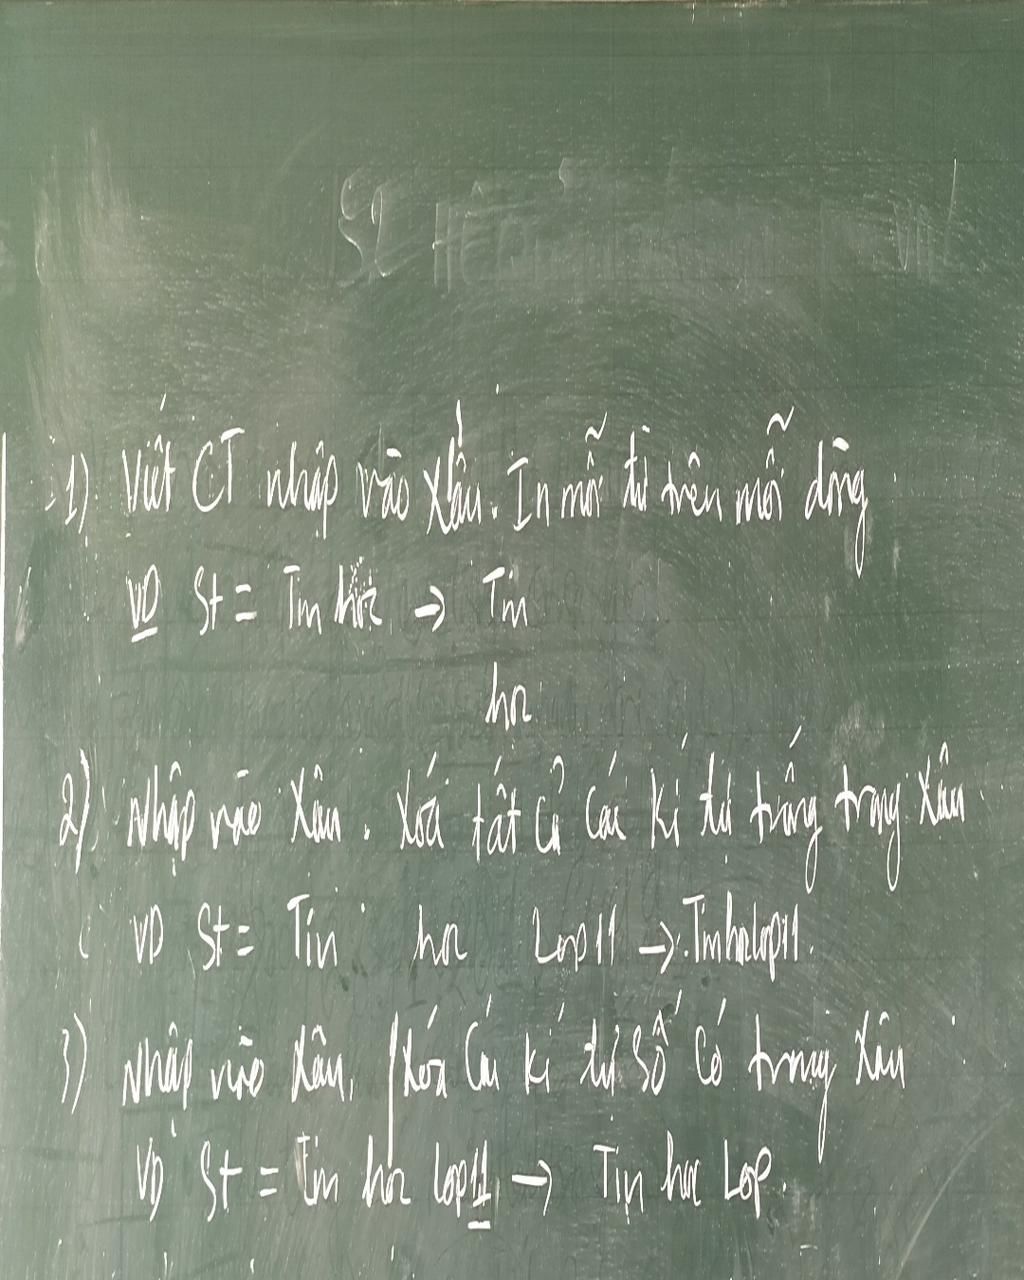 1) Viết CT nhập vào xâu. In mỗi từ trên mỗi dòng
VD St = Tin học → Tin
học
2) Nhập vào xâu. Xoá tất cả các kí tự trắng trong xâu
VD St = Tin học Lop11 → TinhọcLop11.
3) Nhập vào xâu, Xóa các kí tự số có trong xâu
VD St = Tin học Lop11 → Tin học Lop.